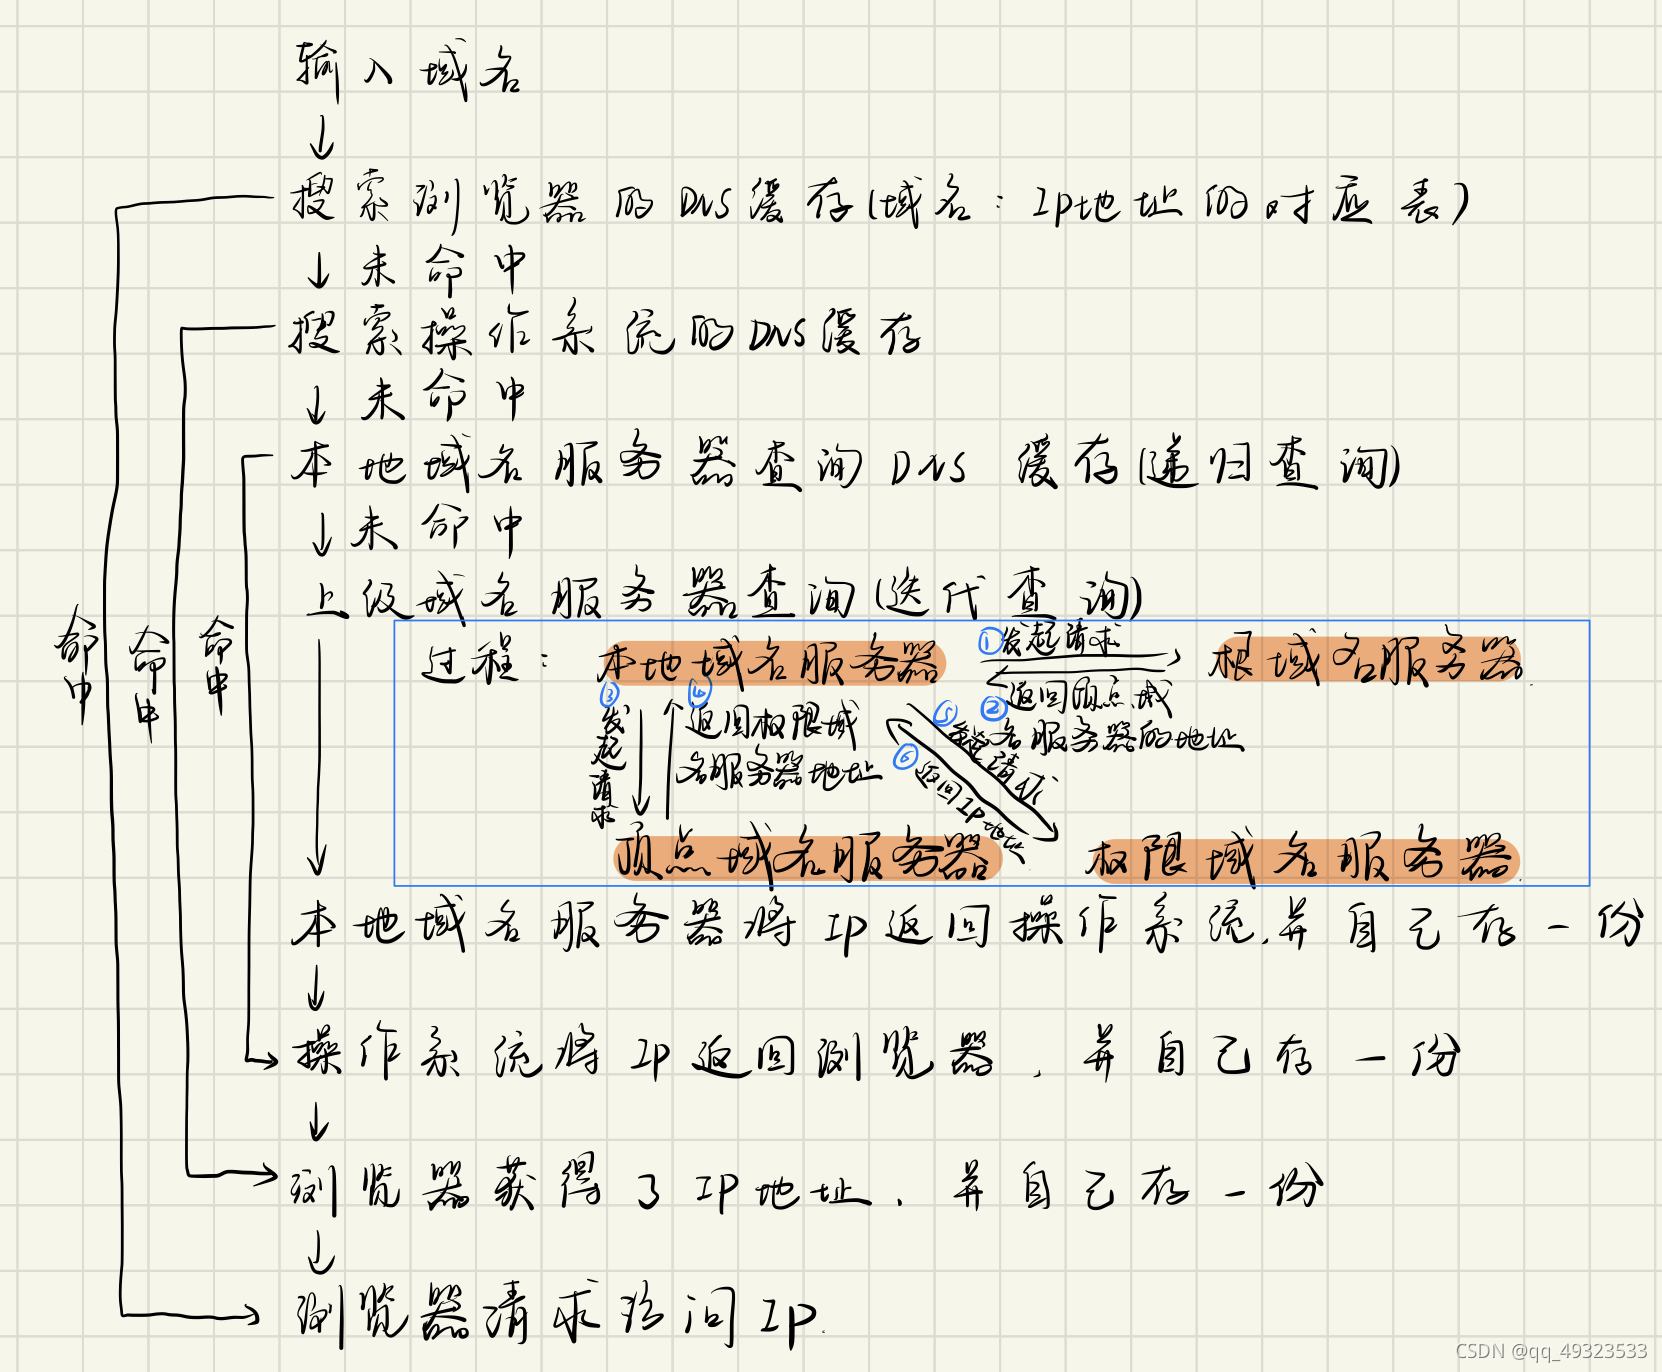 输入域名
搜索浏览器的DNS缓存(域名:IP地址的对应表)
未命中
搜索操作系统的DNS缓存
未命中
本地域名服务器查询DNS 缓存(递归查询)
未命中
上级域名服务器查询(迭代查询)
命中
命中
命中
过程: 本地域名服务器
①发起请求
根域名服务器
②返回顶点域
名服务器的地址
③发起请求
④返回权限域
名服务器地址
⑤发起请求
⑥返回IP地址
顶点域名服务器
权限域名服务器
本地域名服务器将IP返回操作系统,并自己存一份
操作系统将IP返回浏览器,并自己存一份
浏览器获得了IP地址,并自己存一份
浏览器请求访问IP
CSDN @qq_49323533